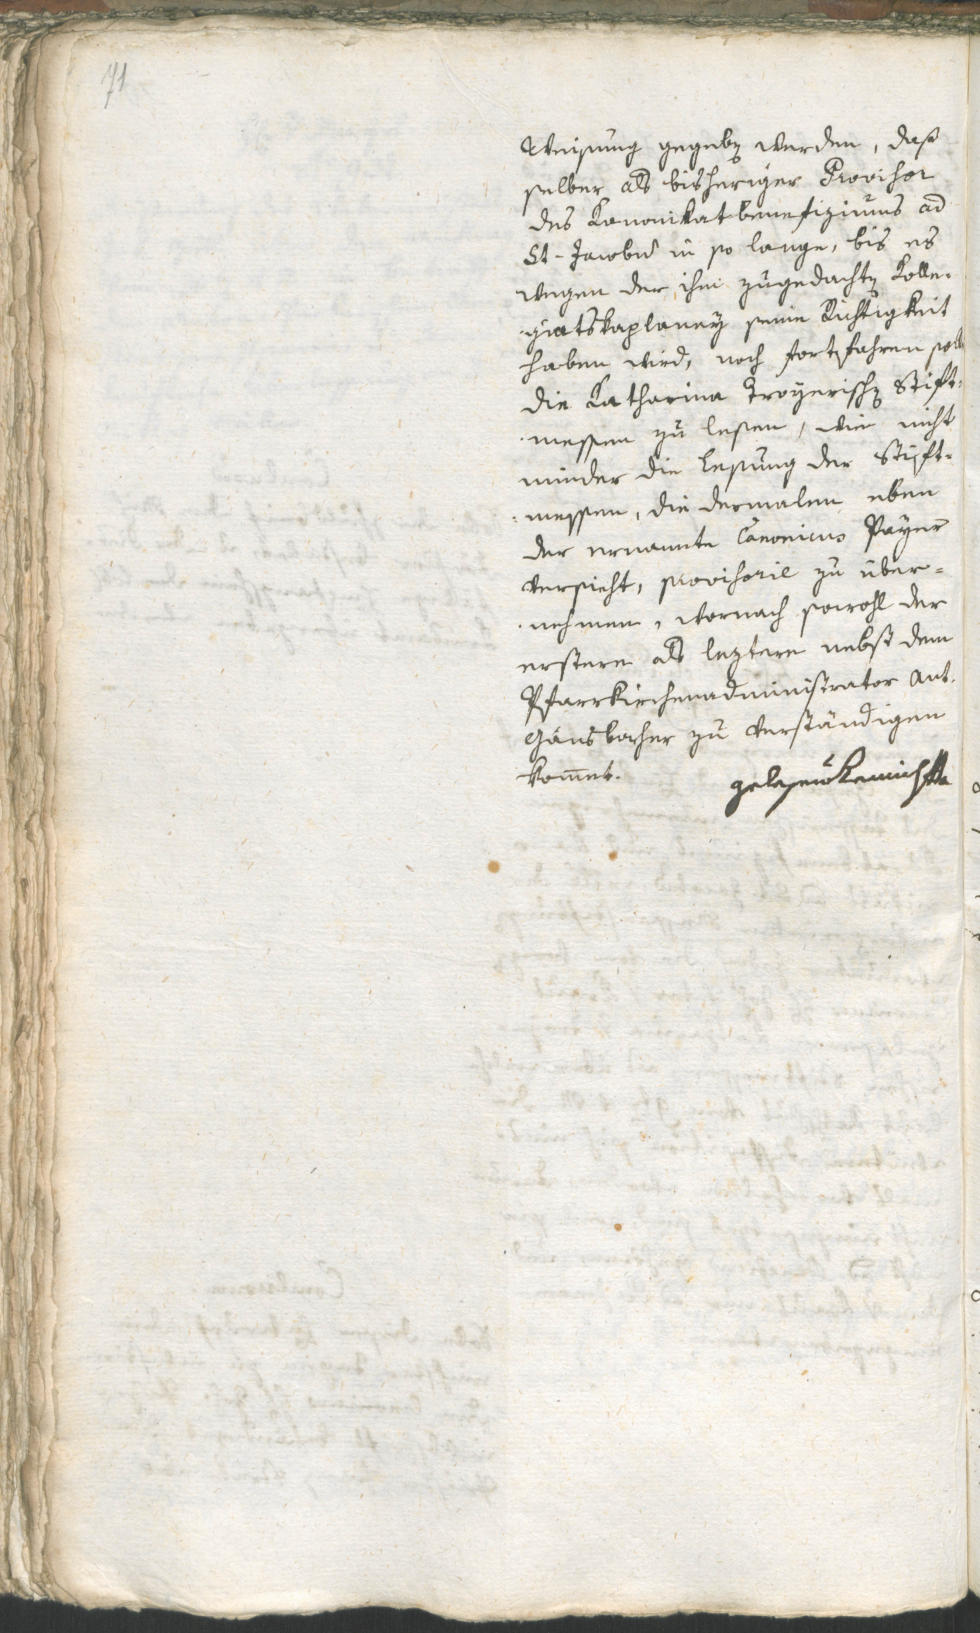 71
Weisung gegeben werden, daß
selber als bisheriger Provisor
des Kanonikatbenefiziums ad
St. Jacobum in so lange, bis es
wegen der ihm zugedachten Kolle-
-giatskaplaney seine Richtigkeit
haben wird, noch fortfahren soll
die Katharina Troyerischen Stift-
-messen zu lesen, wie nicht
minder die Lesung der Stift-
-messen, die dermalen eben
der ernannte Canonicus Payer
versieht, provisorie zu über-
-nehmen, wornach sowohl der
erstere als leztere nebst dem
Pfarrkirchenadministrator Ant.
Gänsbacher zu verständigen
kommt.
gelesen